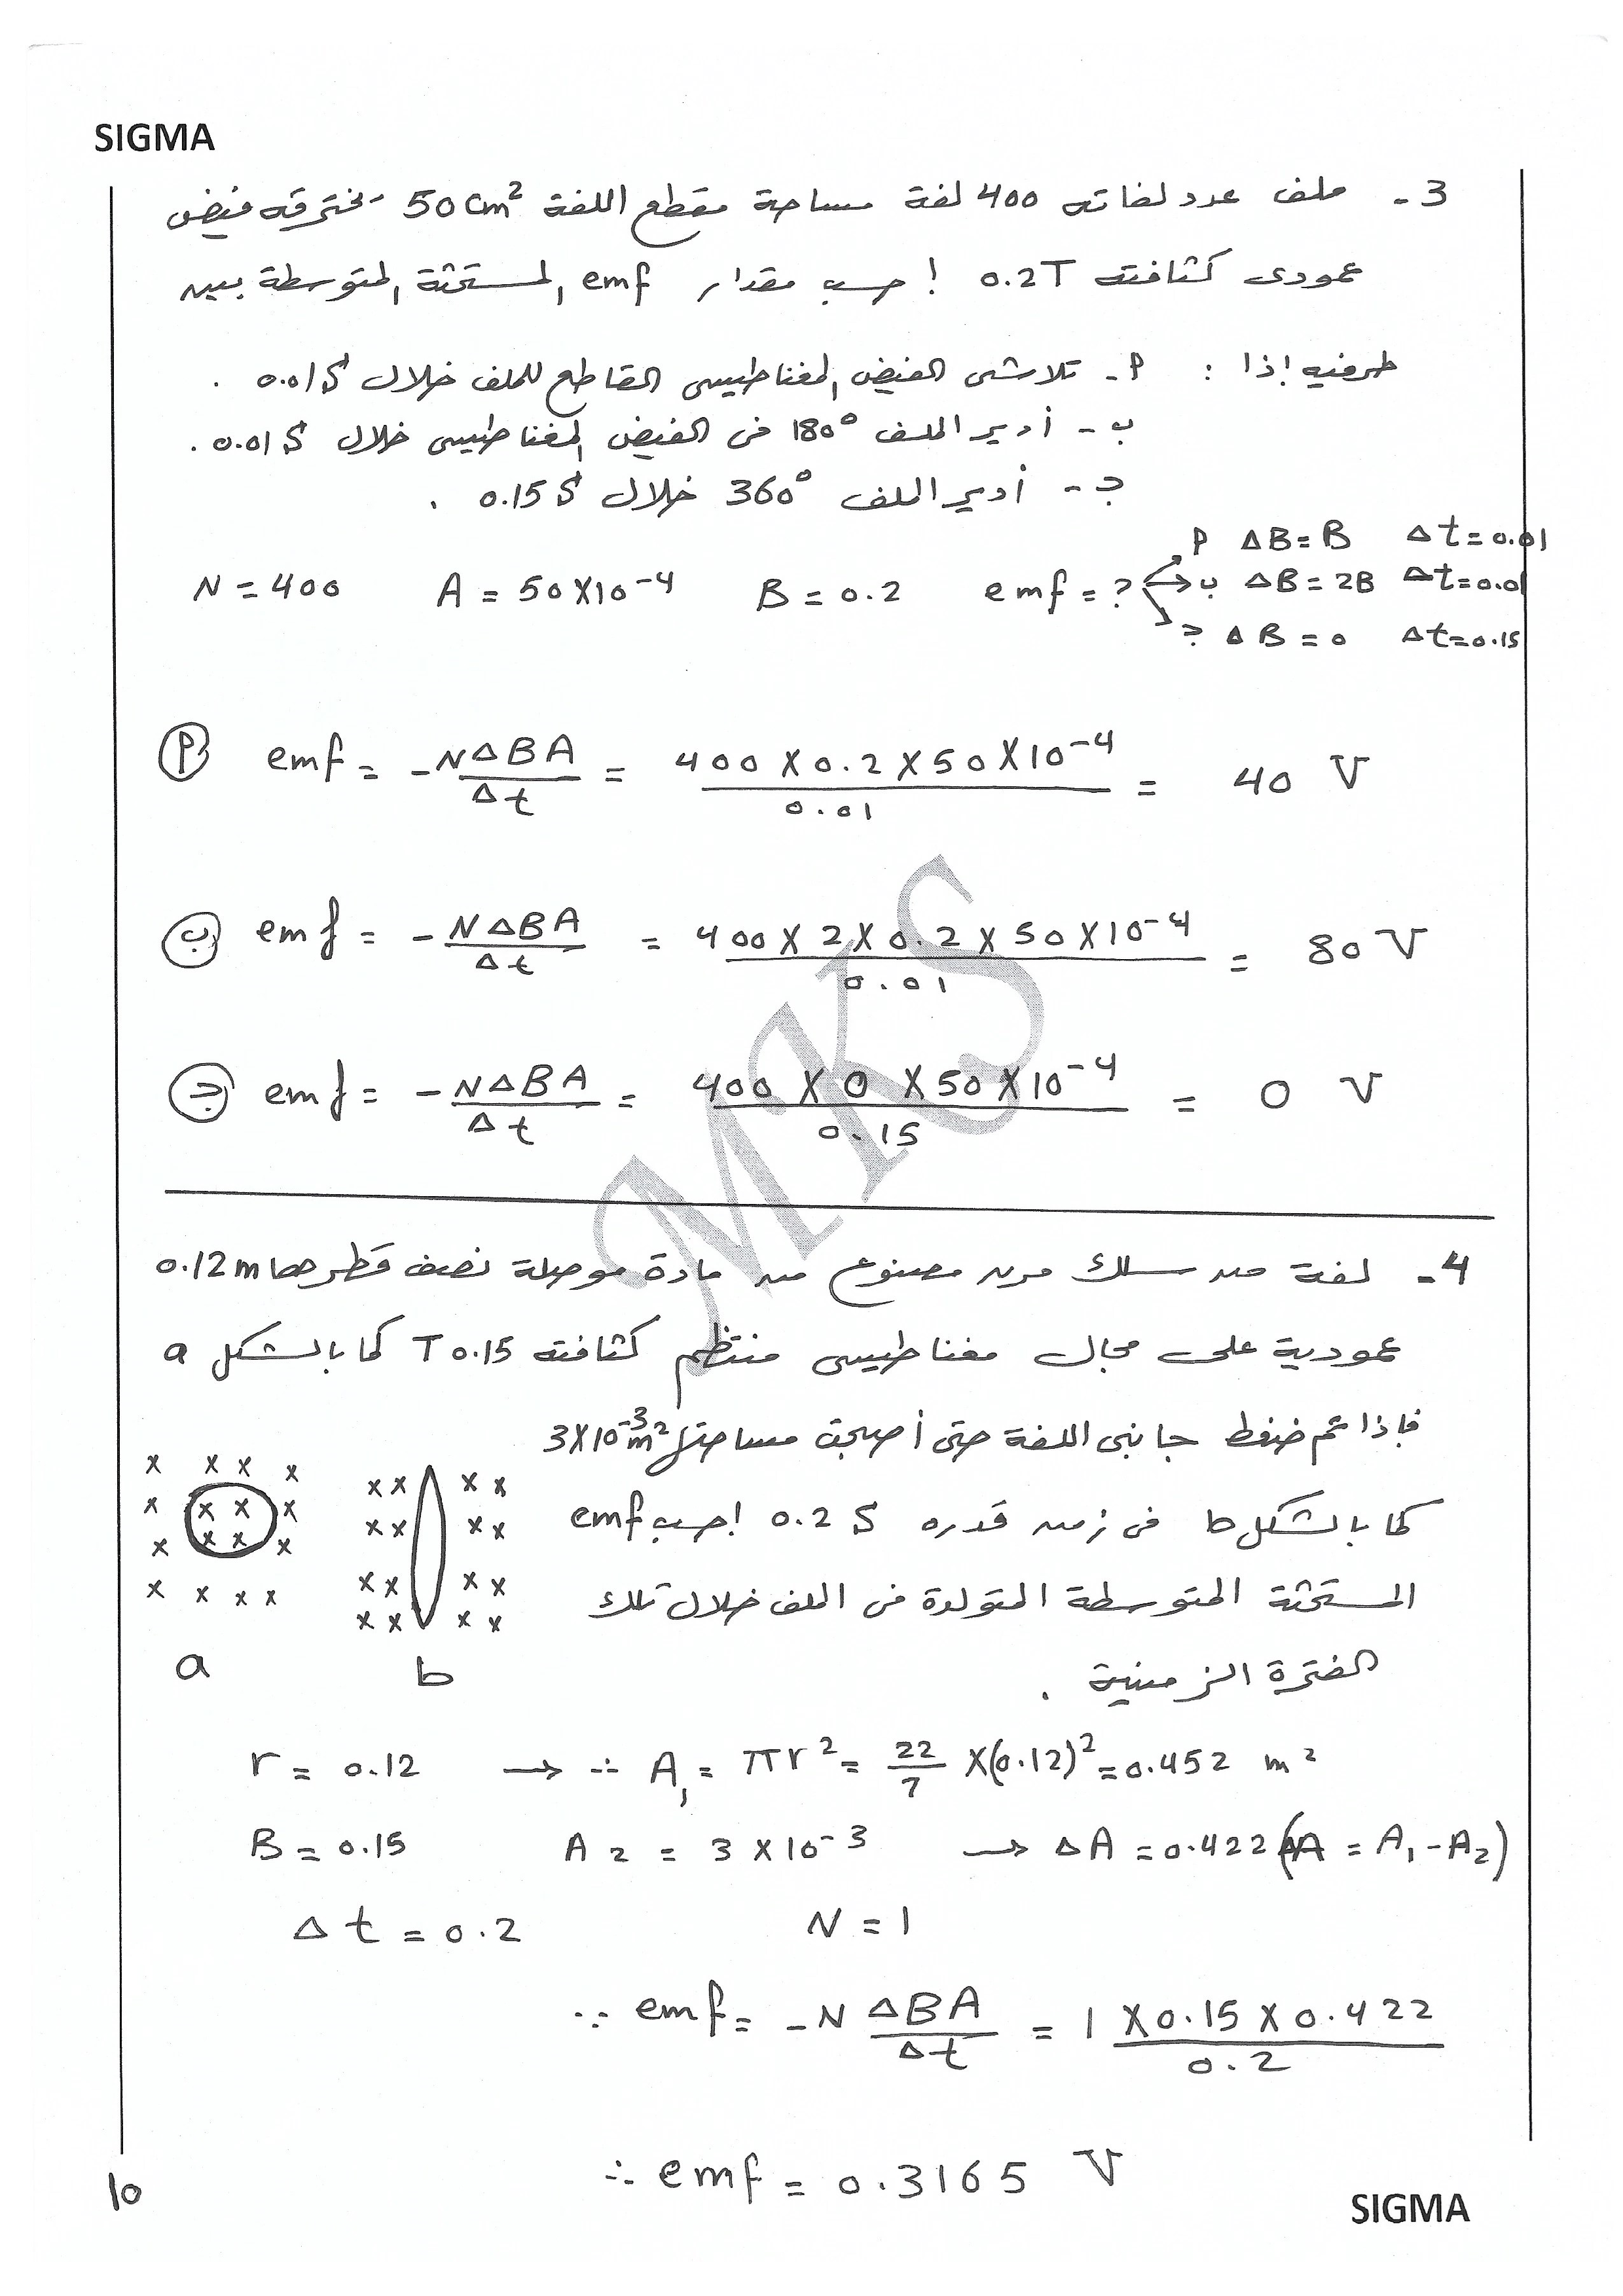 SIGMA
3 - ملف عدد لفاته 400 لفة مساحة مقطع اللفة 50 cm² يخترقه فيض
عمودى كثافته 0.2T احسب مقدار emf المستحثة المتوسطة بين
طرفيه إذا : أ - تلاشى الفيض المغناطيسى القاطع للملف خلال 0.01 S .
ب - أدير الملف 180° فى الفيض المغناطيسى خلال 0.01 S .
ج - أدير الملف 360° خلال 0.15 S .
أ ΔB = B Δt = 0.01
N = 400 A = 50 X 10⁻⁴ B = 0.2 emf = ? ب ΔB = 2B Δt = 0.01
ج ΔB = 0 Δt = 0.15
أ emf = - NΔBA / Δt = 400 X 0.2 X 50 X 10⁻⁴ / 0.01 = 40 V
ب emf = - NΔBA / Δt = 400 X 2 X 0.2 X 50 X 10⁻⁴ / 0.01 = 80 V
ج emf = - NΔBA / Δt = 400 X 0 X 50 X 10⁻⁴ / 0.15 = 0 V
MKS
4 - لفة من سلك مرن مصنوع من مادة موصلة نصف قطرها 0.12 m
عمودية على مجال مغناطيسى منتظم كثافته 0.15 T كما بالشكل a
فإذا تم ضغط جانبى اللفة حتى أصبحت مساحتها 3X10⁻³ m²
كما بالشكل b فى زمن قدره 0.2 S احسب emf
المستحثة المتوسطة المتولدة فى الملف خلال تلك
الفترة الزمنية .
a b
r = 0.12 → ∴ A₁ = πr² = 22/7 X (0.12)² = 0.452 m²
B = 0.15 A₂ = 3 X 10⁻³ → ΔA = 0.422 (ΔA = A₁ - A₂)
Δt = 0.2 N = 1
∴ emf = - N ΔBA / Δt = 1 X 0.15 X 0.422 / 0.2
∴ emf = 0.3165 V
10
SIGMA